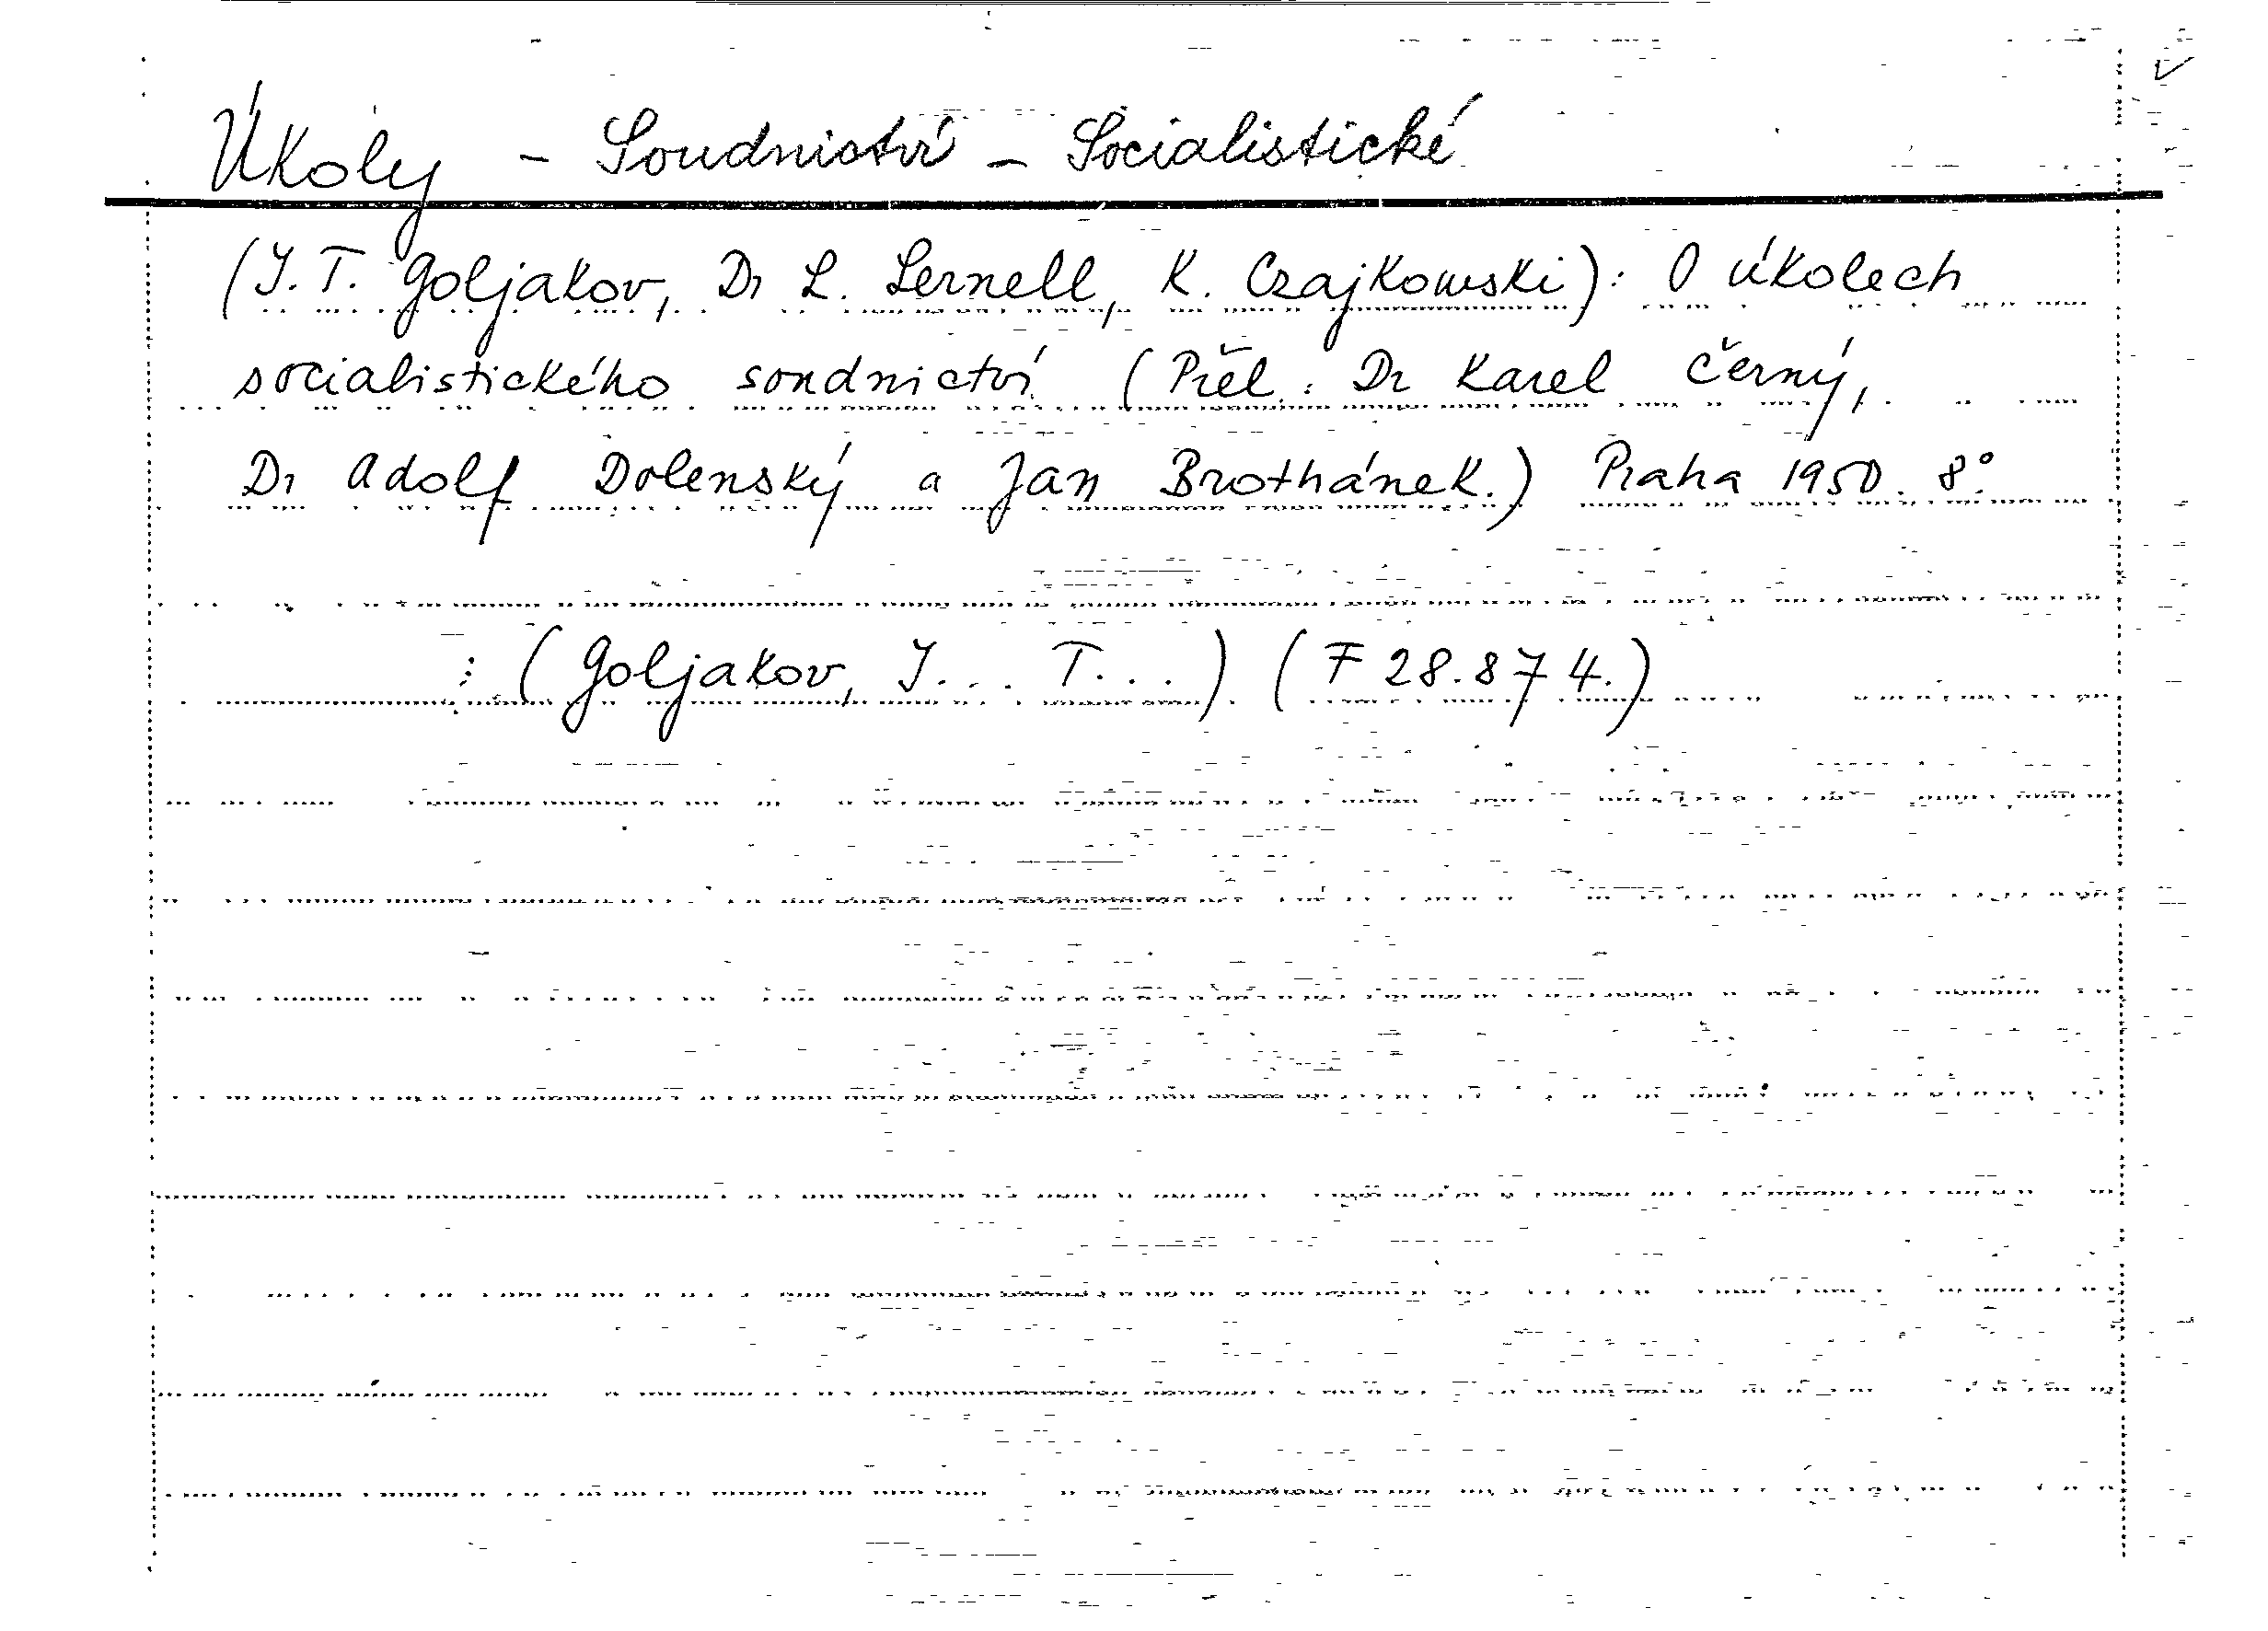 Úkoly - Soudnictví - Socialistické
(I. T. Goljakov, Dr L. Lernell, K. Czajkowski): O úkolech
socialistického soudnictví (Přel. : Dr Karel Černý,
Dr Adolf Dolenský a Jan Brothánek.) Praha 1950. 8°.
: (Goljakov, I... T...) (F 28.874.)